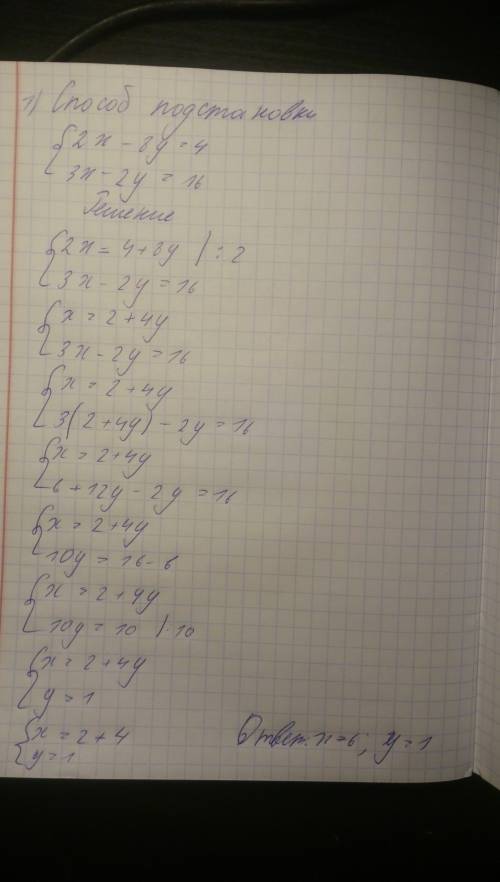 1) Способ подстановки
{2x - 8y = 4
3x - 2y = 16
Решение
{2x = 4 + 8y | : 2
3x - 2y = 16
{x = 2 + 4y
3x - 2y = 16
{x = 2 + 4y
3(2 + 4y) - 2y = 16
{x = 2 + 4y
6 + 12y - 2y = 16
{x = 2 + 4y
10y = 16 - 6
{x = 2 + 4y
10y = 10 | : 10
{x = 2 + 4y
y = 1
{x = 2 + 4
y = 1
Ответ: x = 6; y = 1